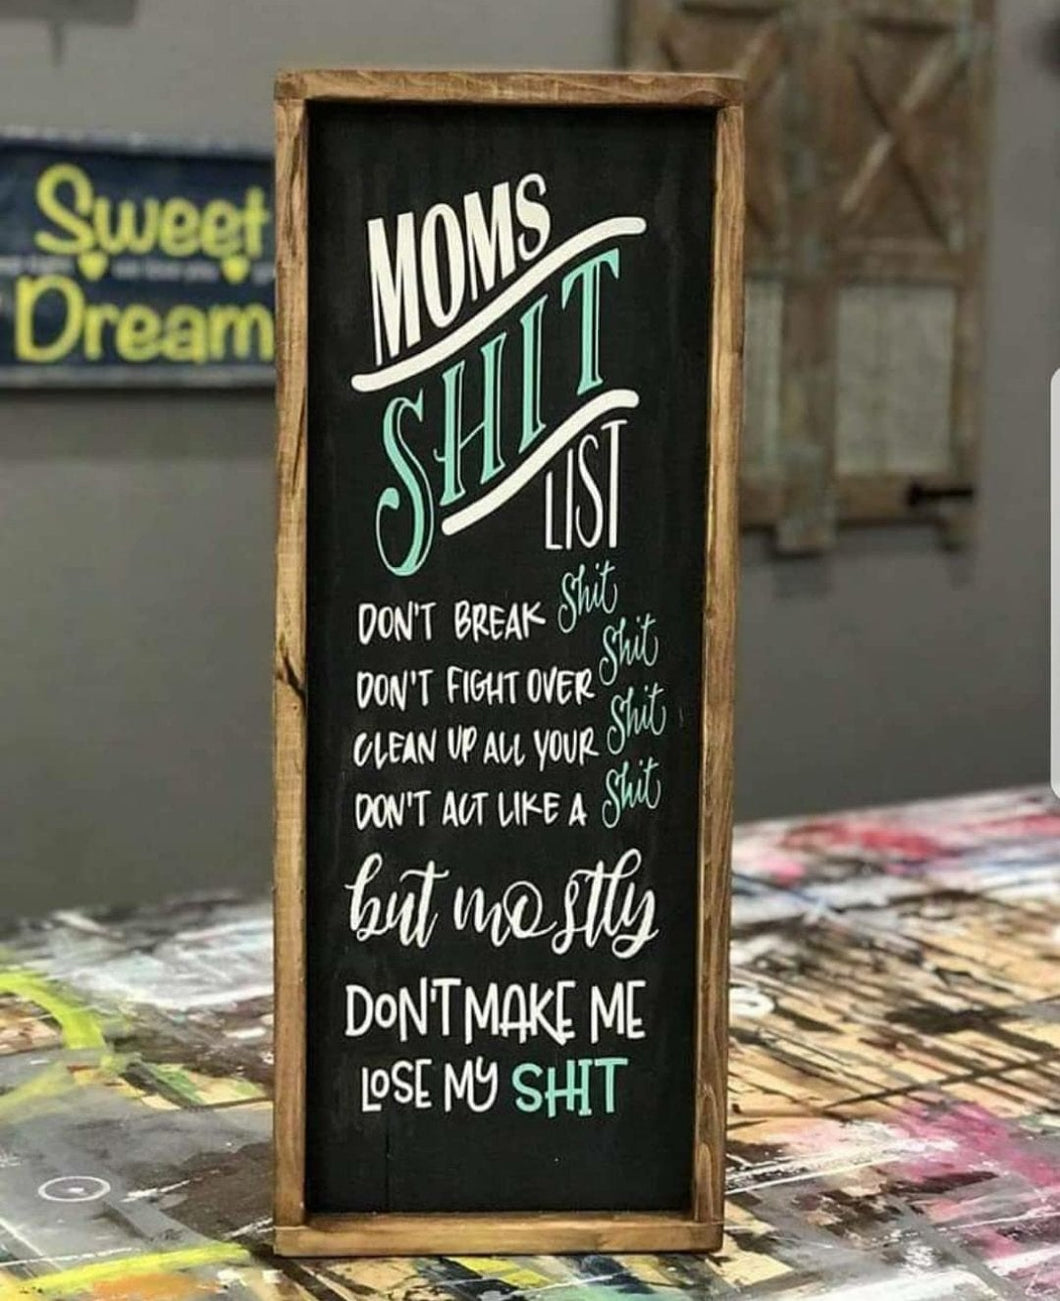 Sweet
Dream
MOMS
SHIT
LIST
DON'T BREAK Shit
DON'T FIGHT OVER Shit
CLEAN UP ALL YOUR Shit
DON'T ACT LIKE A Shit
but mostly
DON'T MAKE ME
LOSE MY SHIT